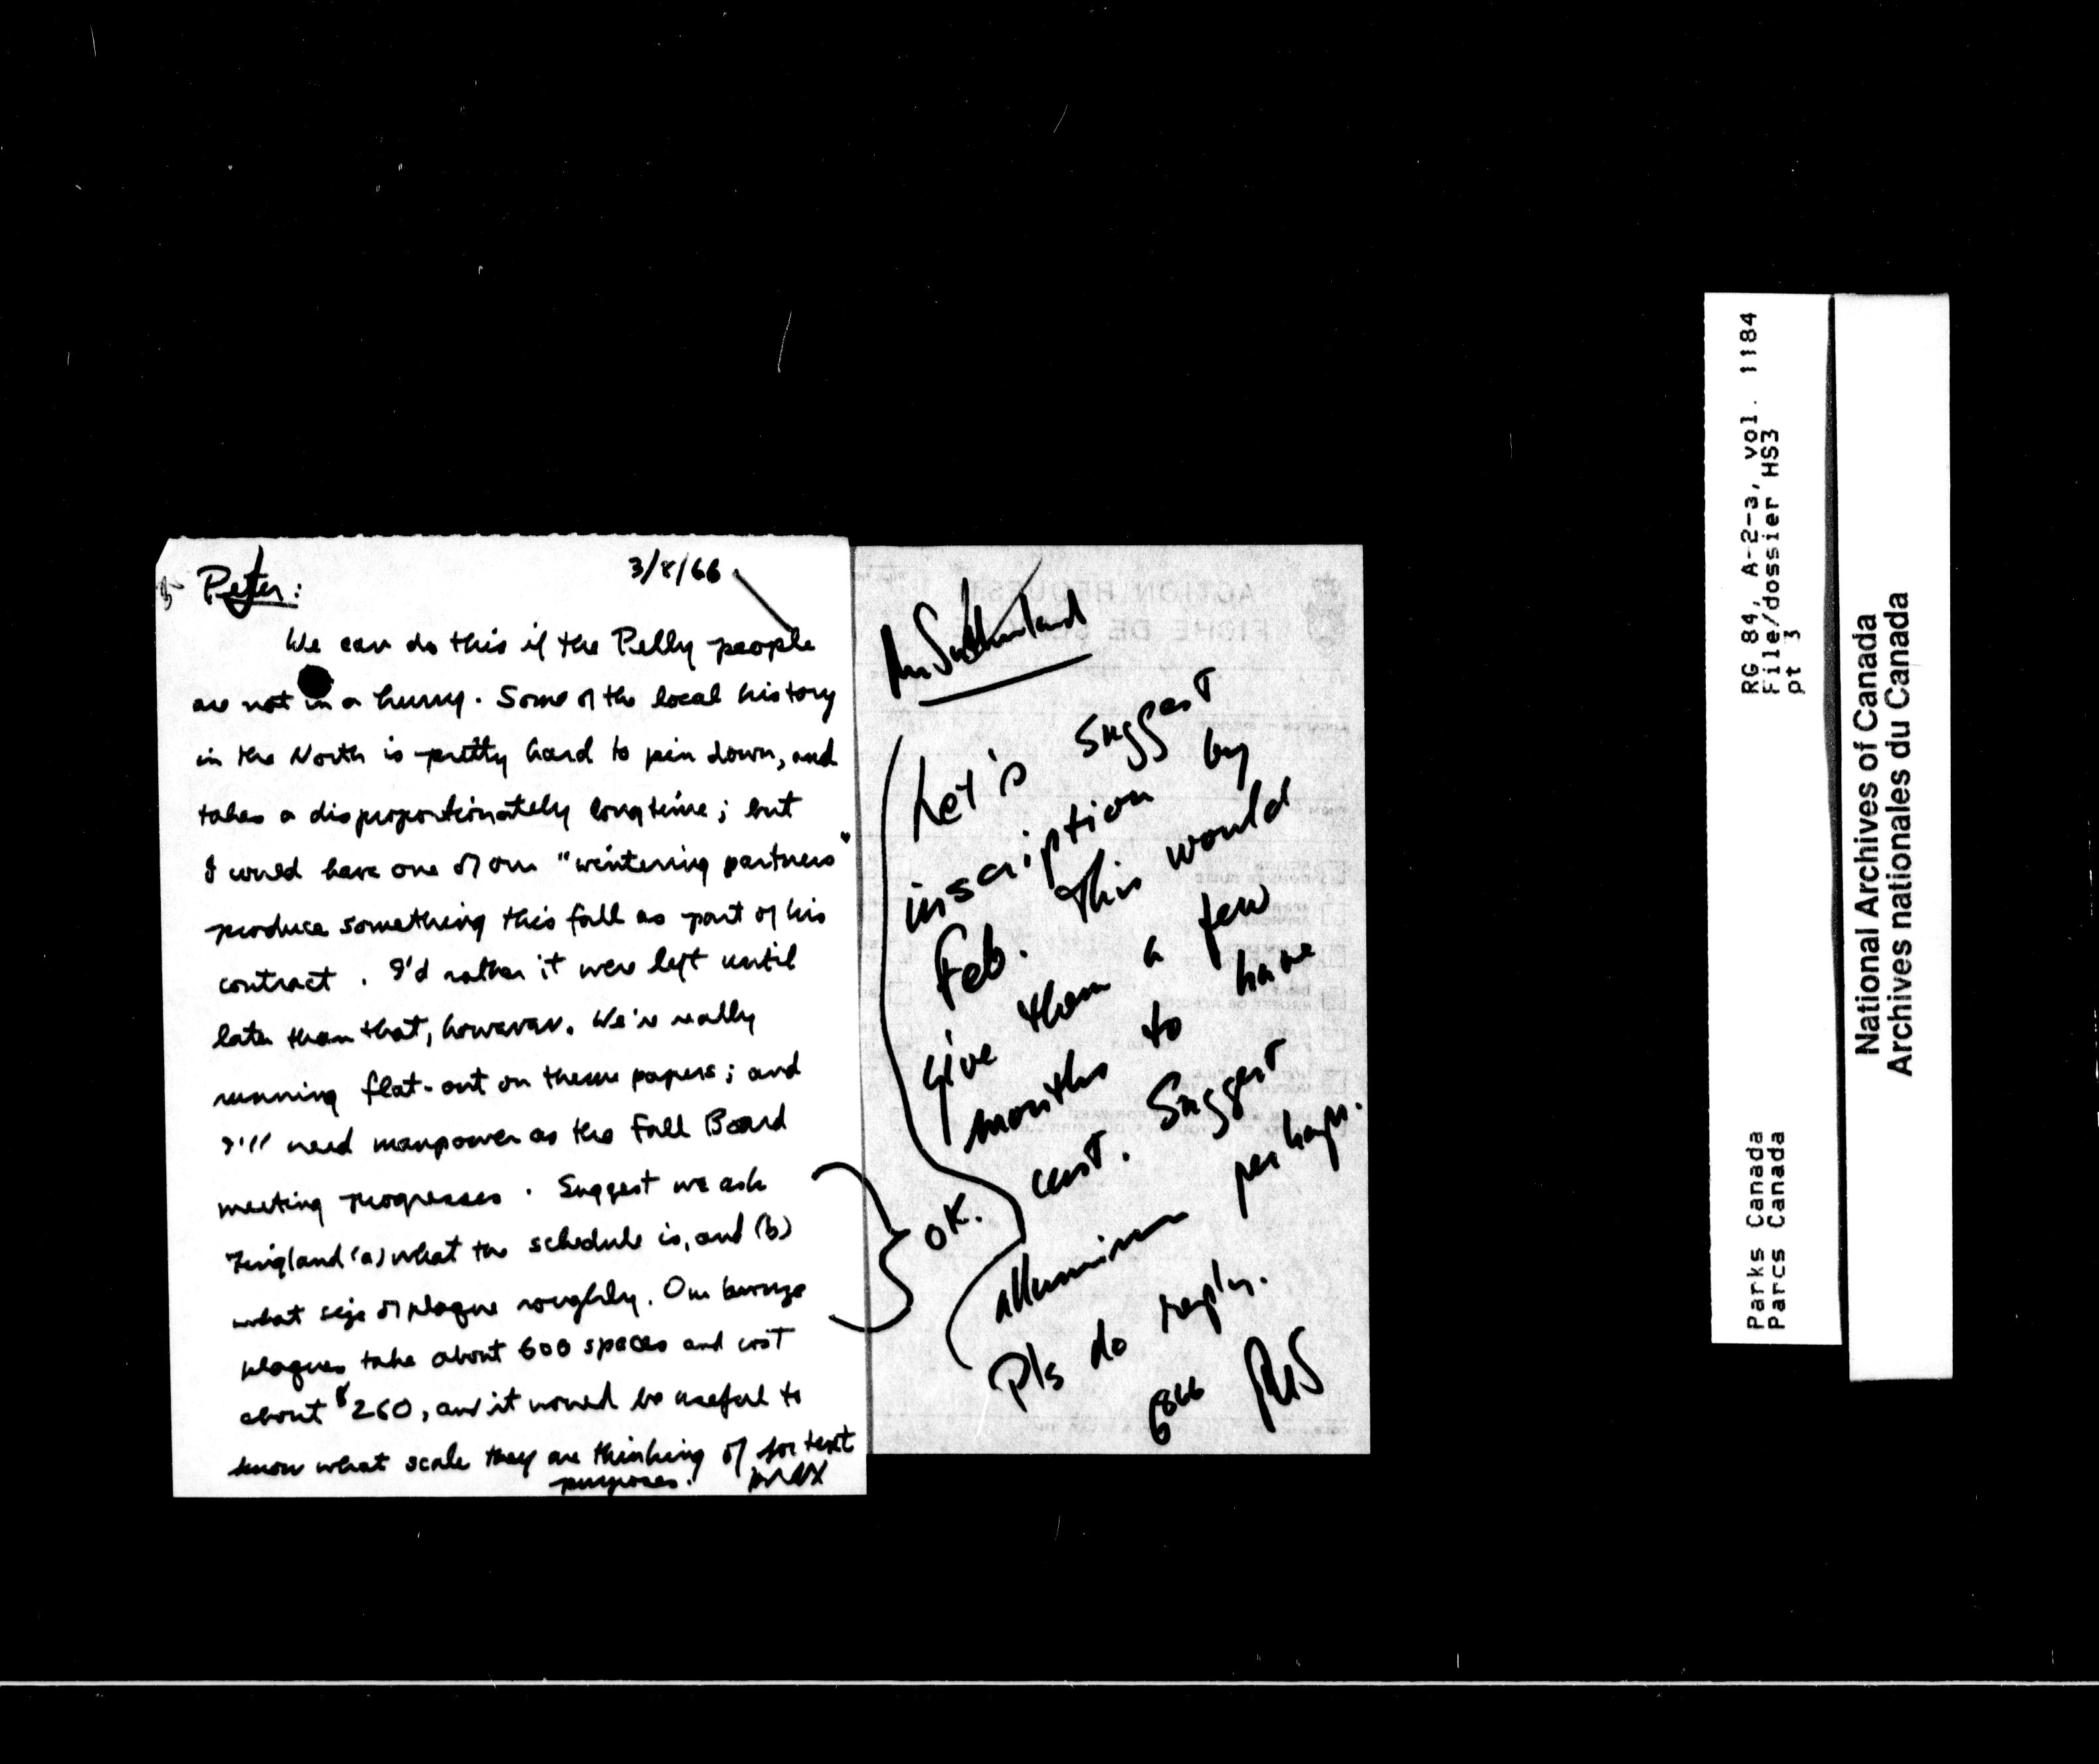 Peter:
3/8/66
We can do this if the Pelly people
are not in a hurry. Some of the local history
in the North is pretty hard to pin down, and
takes a disproportionately long time; but
I could have one of our "wintering partners"
produce something this fall as part of his
contract. I'd rather it were left until
later than that, however. We're really
running flat-out on these papers; and
I'll need manpower as the Fall Board
meeting progresses. Suggest we ask
(a) what the schedule is, and (b)
what size of plaque roughly. Our bronze
plaques take about 600 spaces and cost
about $260, and it would be useful to
know what scale they are thinking of for text
purposes.
OK.
Mr Sutherland
Let's suggest
inscription by
Feb. This would
give them a few
months to have
cast. Suggest
alluminum perhaps.
Pls do reply.
ACTION REQUEST
FICHE DE
RG 84, A-2-3, vol. 1184
File/dossier HS3
pt 3
Parks Canada
Parcs Canada
National Archives of Canada
Archives nationales du Canada